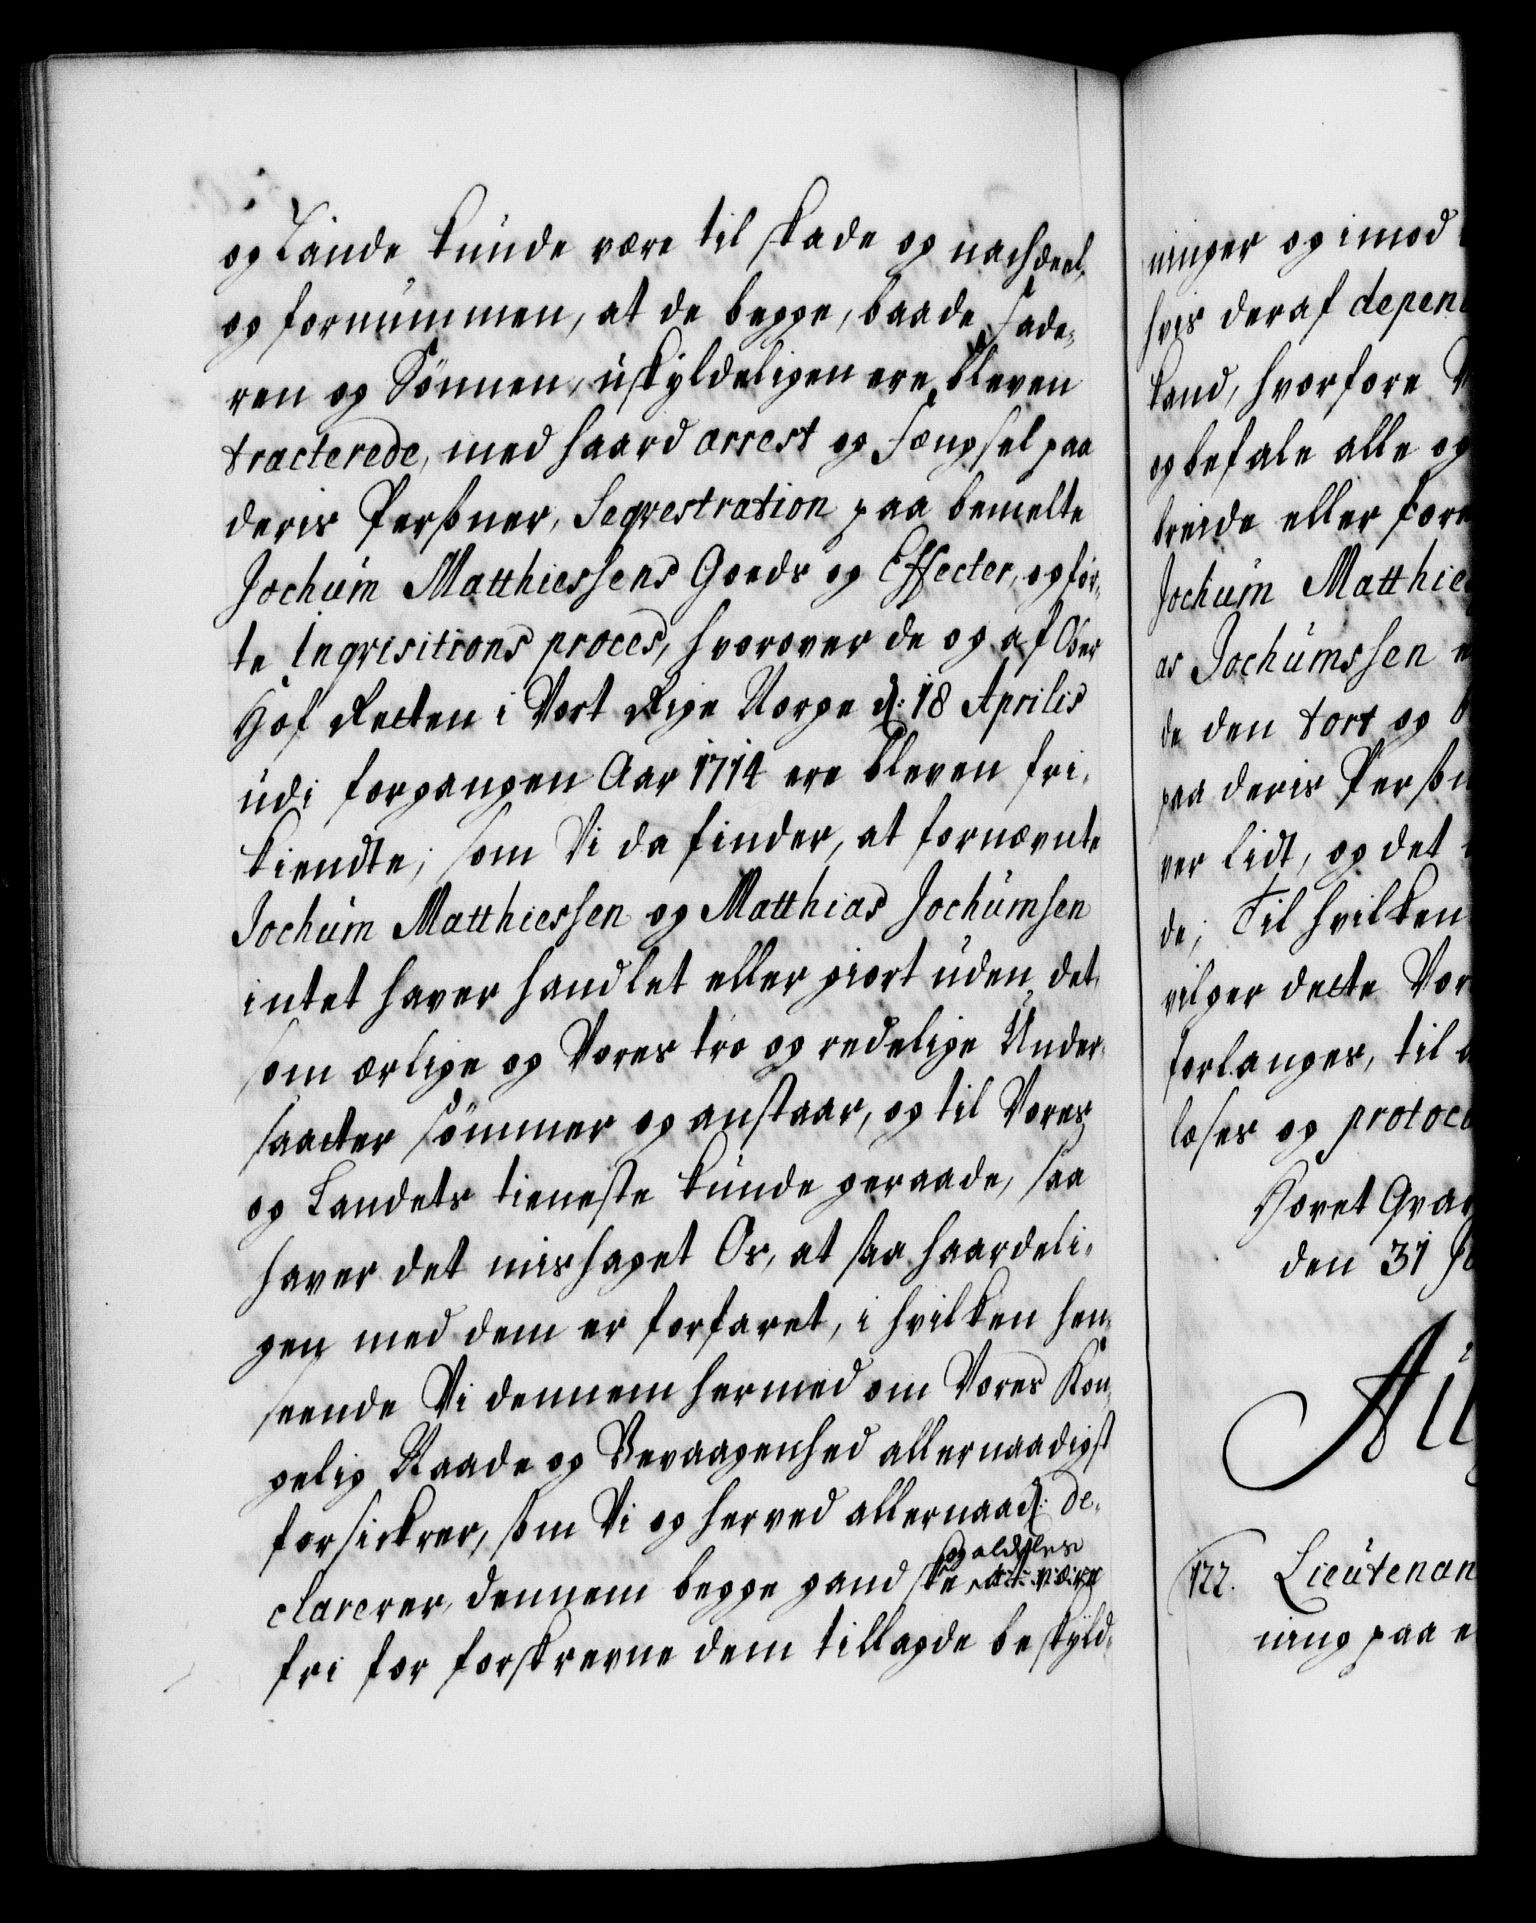 og Lande kunde være til skade og nachdeel,
og fornummen, at de begge, baade Fade-
ren og Sönnen, uskyldeligen ere bleven
tracterede, med haard arrest og Fængsel paa
deris Personer, Seqvestration paa bemelte
Jochum Matthiessens Goeds og Effecter, og för-
te Inqvisitions proces, hvorover de og af Ober
Hof Retten i Vort Rige Norge d: 18 Aprilis
udi forgangen Aar 1714 ere bleven fri-
kiendte; som Vi da finder, at fornævnte
Jochum Matthiessen og Matthias Jochumsen
intet haver handlet eller giort uden det,
som ærlige og Vores tro og redelige Under-
saatter sömmer og anstaar, og til Vores
og Landets tieneste kunde geraade, saa
haver det mishaget Os, at saa haardeli-
gen med dem er forfaret, i hvilken hen-
seende Vi dennem hermed om Vores Kon-
gelig Naade og Bevaagenhed allernaadigst
forsickrer, som Vi og herved allernaad: de-
og aldeles
clarerer, dennem begge gandske at være
fri for forskrevne dem tillagde beskyld-
ninger og imod
hvis deraf depen
kand, hvorfore
og befale alle og
breide eller fore
Jochum Matthie
as Jochumssen
de den tort og
paa deris Person
ver lidt, og det
de; Til hvilken
vilger dette Vor
forlanges, til
læses og protoco
Hævet Qvar
den 31
122. Lieutenan
ning paa